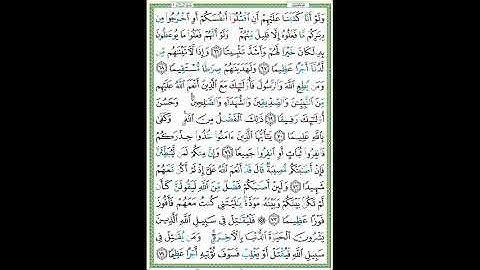 وَلَوْ أَنَّا كَتَبْنَا عَلَيْهِمْ أَنِ ٱقْتُلُوٓا۟ أَنفُسَكُمْ أَوِ ٱخْرُجُوا۟ مِن
دِيَـٰرِكُم مَّا فَعَلُوهُ إِلَّا قَلِيلٌ مِّنْهُمْ وَلَوْ أَنَّهُمْ فَعَلُوا۟ مَا يُوعَظُونَ
بِهِۦ لَكَانَ خَيْرًا لَّهُمْ وَأَشَدَّ تَثْبِيتًا ٦٦ وَإِذًا لَّـَٔاتَيْنَـٰهُم مِّن
لَّدُنَّآ أَجْرًا عَظِيمًا ٦٧ وَلَهَدَيْنَـٰهُمْ صِرَٰطًا مُّسْتَقِيمًا ٦٨
وَمَن يُطِعِ ٱللَّهَ وَٱلرَّسُولَ فَأُو۟لَـٰٓئِكَ مَعَ ٱلَّذِينَ أَنْعَمَ ٱللَّهُ عَلَيْهِم
مِّنَ ٱلنَّبِيِّـۧنَ وَٱلصِّدِّيقِينَ وَٱلشُّهَدَآءِ وَٱلصَّـٰلِحِينَ وَحَسُنَ
أُو۟لَـٰٓئِكَ رَفِيقًا ٦٩ ذَٰلِكَ ٱلْفَضْلُ مِنَ ٱللَّهِ وَكَفَىٰ
بِٱللَّهِ عَلِيمًا ٧٠ يَـٰٓأَيُّهَا ٱلَّذِينَ ءَامَنُوا۟ خُذُوا۟ حِذْرَكُمْ
فَٱنفِرُوا۟ ثُبَاتٍ أَوِ ٱنفِرُوا۟ جَمِيعًا ٧١ وَإِنَّ مِنكُمْ لَمَن لَّيُبَطِّئَنَّ
فَإِنْ أَصَـٰبَتْكُم مُّصِيبَةٌ قَالَ قَدْ أَنْعَمَ ٱللَّهُ عَلَىَّ إِذْ لَمْ أَكُن مَّعَهُمْ
شَهِيدًا ٧٢ وَلَئِنْ أَصَـٰبَكُمْ فَضْلٌ مِّنَ ٱللَّهِ لَيَقُولَنَّ كَأَن
لَّمْ تَكُنۢ بَيْنَكُمْ وَبَيْنَهُۥ مَوَدَّةٌ يَـٰلَيْتَنِى كُنتُ مَعَهُمْ فَأَفُوزَ
فَوْزًا عَظِيمًا ٧٣ فَلْيُقَـٰتِلْ فِى سَبِيلِ ٱللَّهِ ٱلَّذِينَ
يَشْرُونَ ٱلْحَيَوٰةَ ٱلدُّنْيَا بِٱلْـَٔاخِرَةِ وَمَن يُقَـٰتِلْ فِى
سَبِيلِ ٱللَّهِ فَيُقْتَلْ أَوْ يَغْلِبْ فَسَوْفَ نُؤْتِيهِ أَجْرًا عَظِيمًا ٧٤